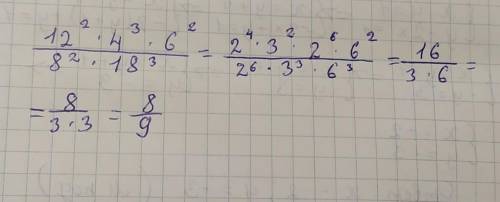 (12² · 4³ · 6²)/(8² · 18³) = (2⁴ · 3² · 2⁶ · 6²)/(2⁶ · 3³ · 6³) = 16/(3 · 6) =
= 8/(3 · 3) = 8/9